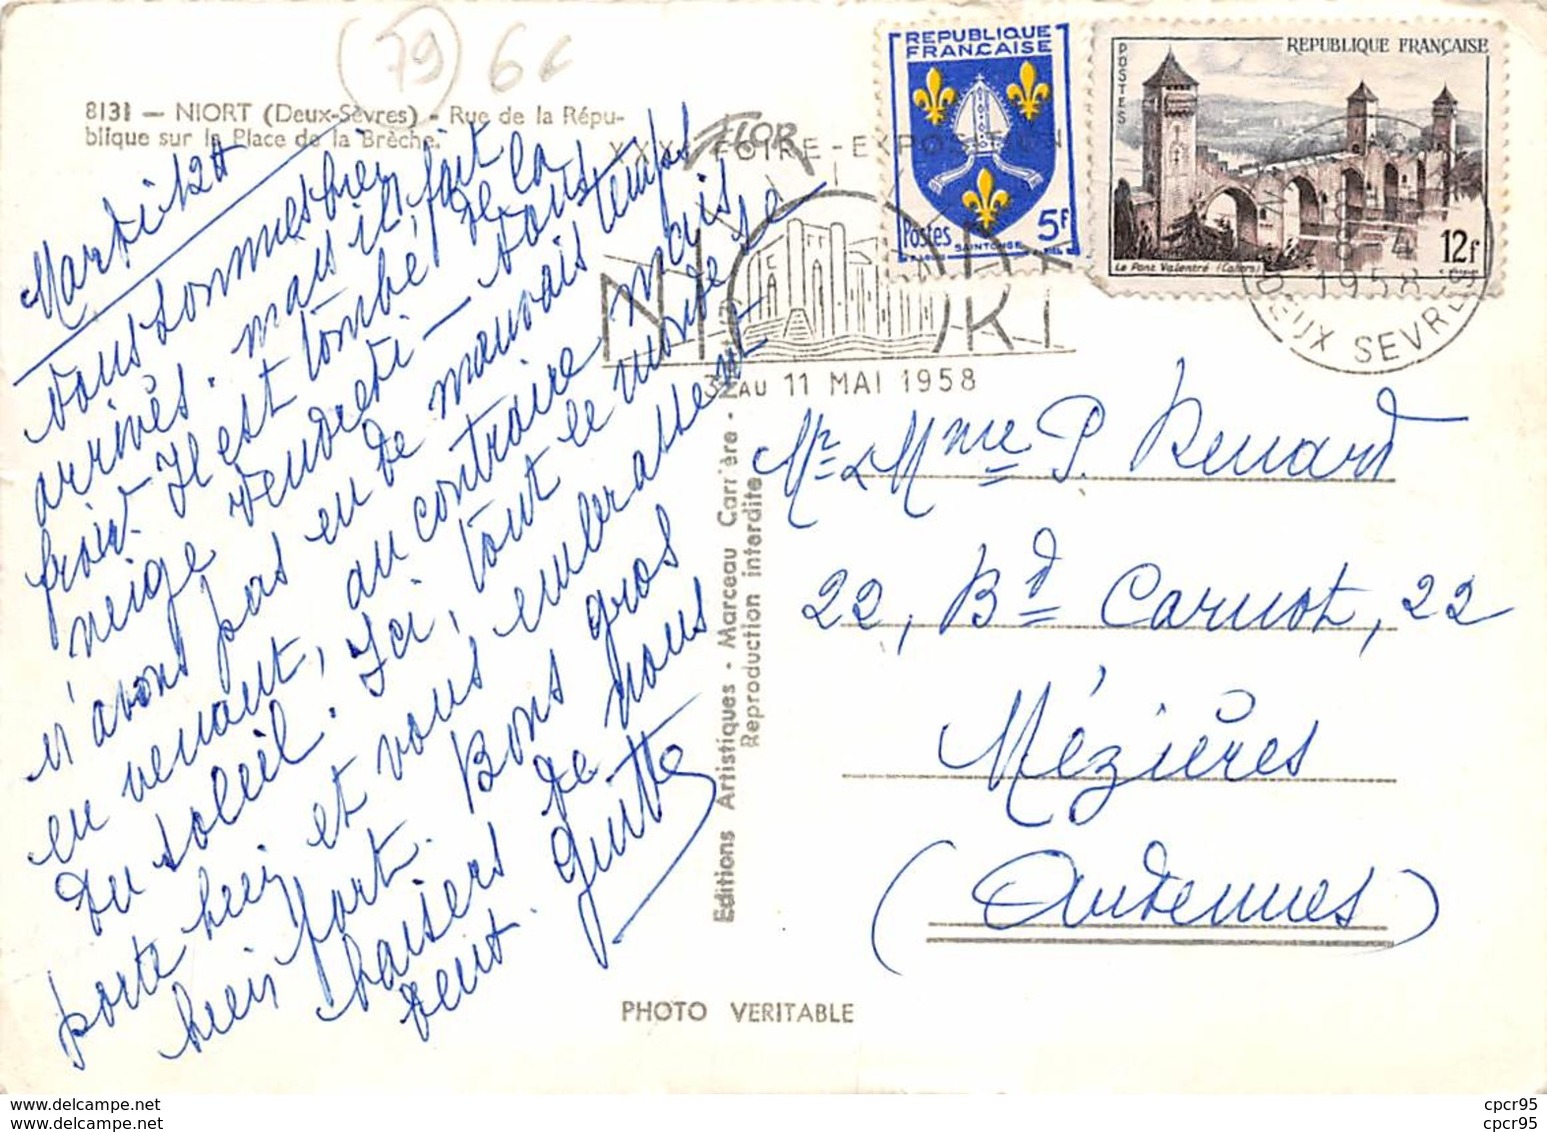 (79) 6€
8131 — NIORT (Deux-Sèvres) - Rue de la Répu-
blique sur la Place de la Brèche.
Mardi 12h
Nous sommes bien
arrivés. mais il fait
froid. Il est tombé de la
neige Vendredi — Nous
n'avons pas eu de mauvais temps
en venant, au contraire mais
du soleil. Ici, tout le monde se
porte bien et vous embrassent
bien fort. Bons gros
baisers de nous
tout. Guitte
Editions Artistiques - Marceau Carrière - Niort
Reproduction interdite
PHOTO VERITABLE
FLOR
FOIRE-EXPOSITION
NIORT
3 AU 11 MAI 1958
REPUBLIQUE
FRANÇAISE
Postes
SAINTONGE
5f
POSTES
REPUBLIQUE FRANÇAISE
Le Pont Valentré (Cahors)
12f
1958
DEUX SEVRES
Mr & Mme P. Renard
22, Bd Carnot, 22
Mézières
(Ardennes)
cpcr95
www.delcampe.net
cpcr95
www.delcampe.net